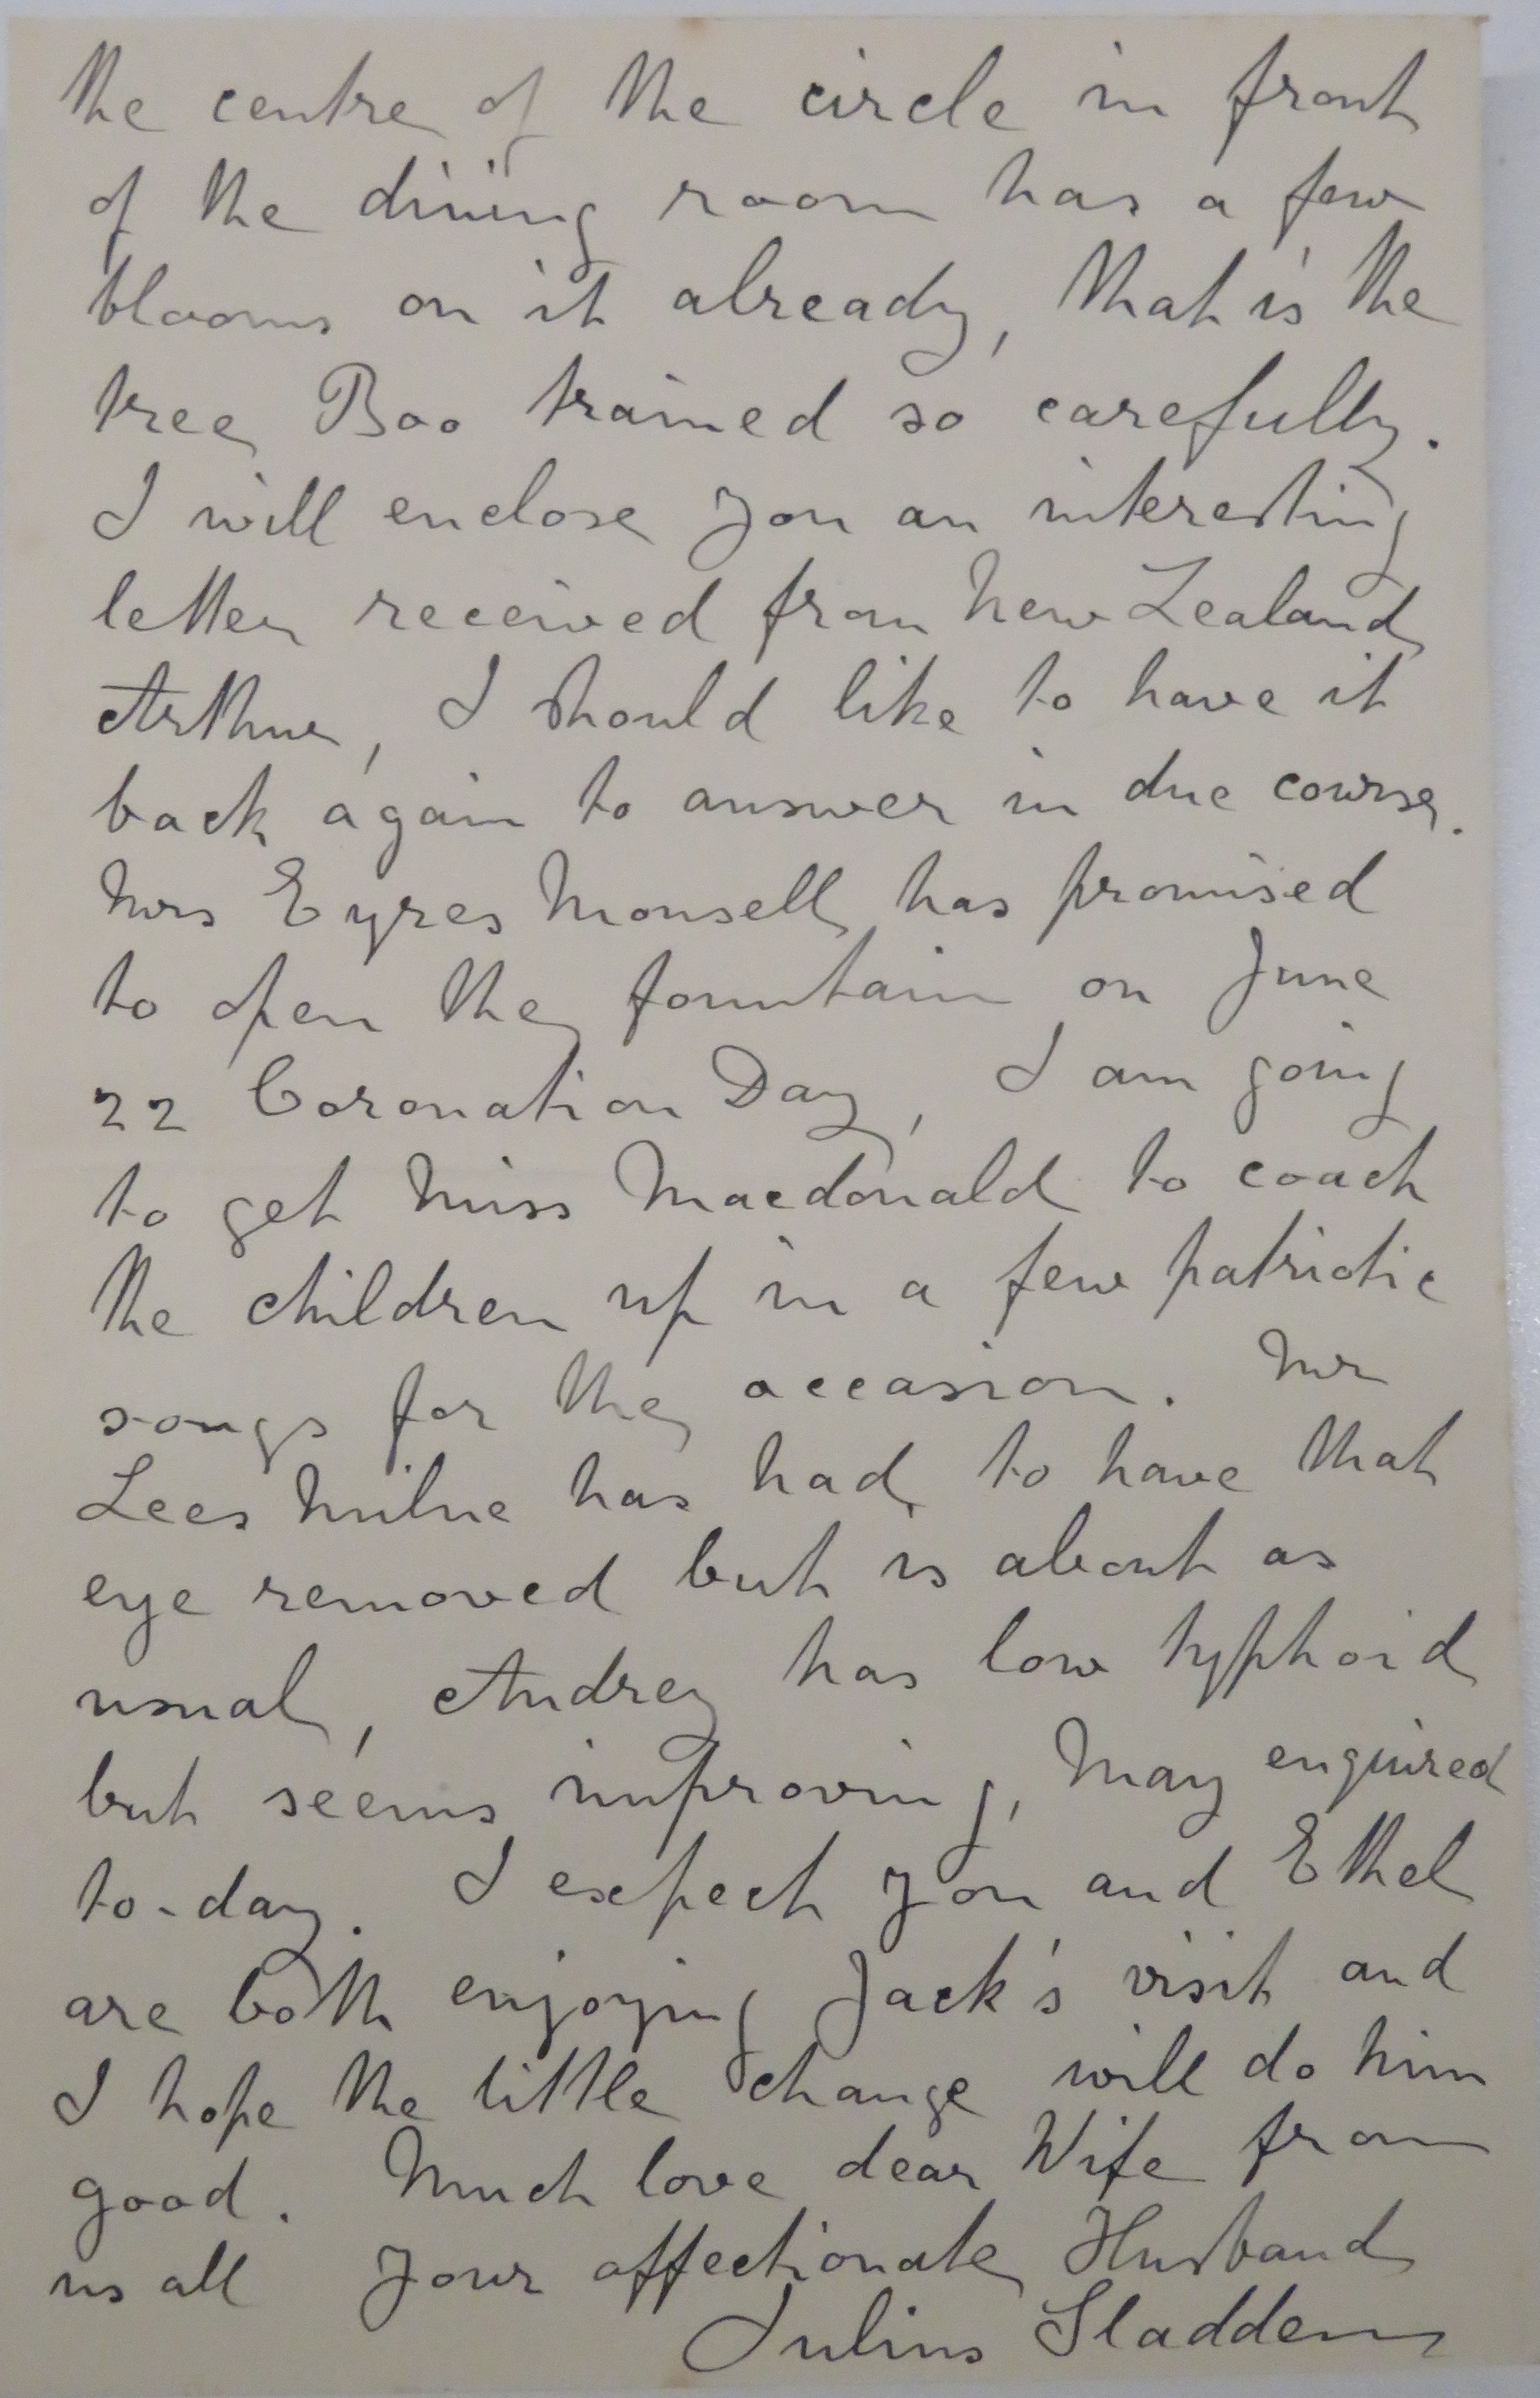 the centre of the circle in front
of the dining room has a few
blooms on it already, that is the
tree Boo trained so carefully.
I will enclose you an interesting
letter received from New Zealand
Arthur, I should like to have it
back again to answer in due course.
Mrs Eyres Monsell has promised
to open the fountain on June
22 Coronation Day, I am going
to get Miss Macdonald to coach
the children up in a few patriotic
songs for the occasion. Mr
Lees Milne has had to have that
eye removed but is about as
usual, Audrey has low typhoid
but seems improving, May enquired
to-day. I expect you and Ethel
are both enjoying Jack's visit and
I hope the little change will do him
good. Much love dear Wife from
us all your affectionate Husband
Julius Sladden